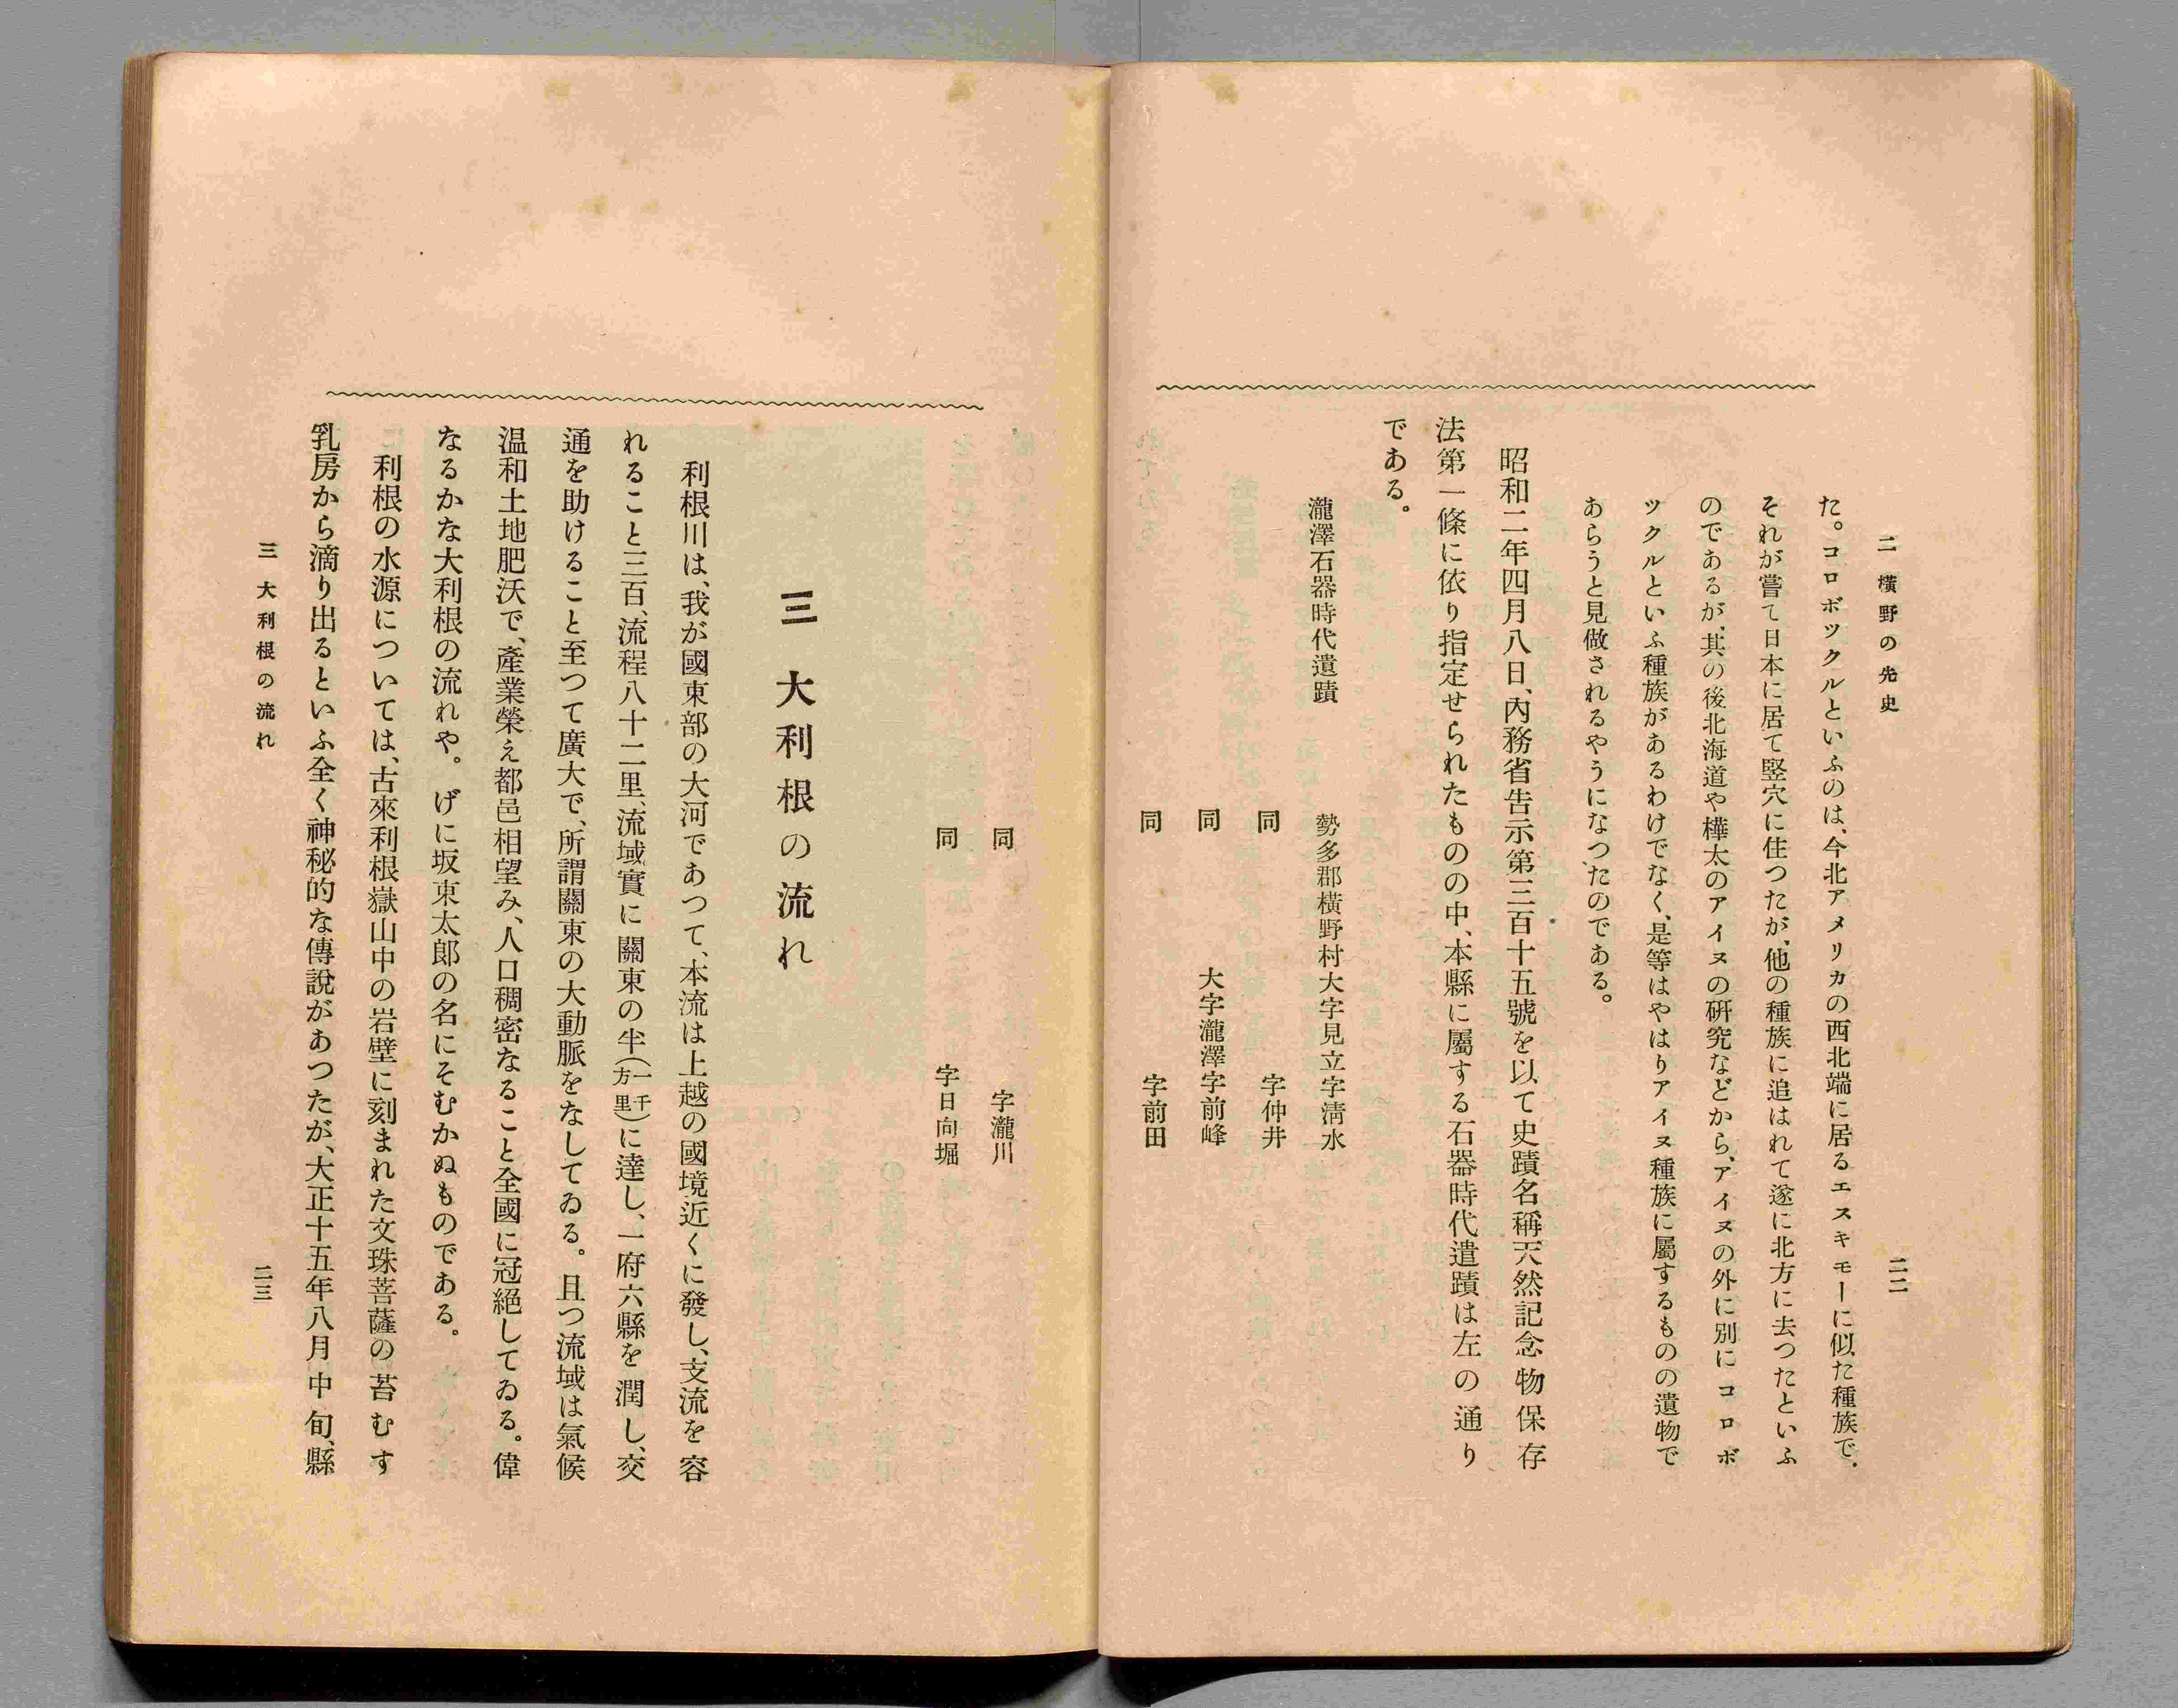 二 橫野の先史
二二
た。コロボツクルといふのは、今北アメリカの西北端に居るエスキモーに似た種族で、
それが嘗て日本に居て竪穴に住つたが、他の種族に追はれて遂に北方に去つたといふ
のであるが、其の後北海道や樺太のアイヌの硏究などから、アイヌの外に別にコロボ
ツクルといふ種族があるわけでなく、是等はやはりアイヌ種族に屬するものの遺物で
あらうと見做されるやうになつたのである。
昭和二年四月八日、內務省告示第三百十五號を以て史蹟名稱天然記念物保存
法第一條に依り指定せられたものの中、本縣に屬する石器時代遺蹟は左の通り
である。
瀧澤石器時代遺蹟 勢多郡橫野村大字見立字淸水
同 字仲井
同 大字瀧澤字前峰
同 字前田
同 字瀧川
同 字日向堀
三 大利根の流れ
利根川は、我が國東部の大河であつて、本流は上越の國境近くに發し、支流を容
れること三百、流程八十二里、流域實に關東の半(一千方里)に達し、一府六縣を潤し、交
通を助けること至つて廣大で、所謂關東の大動脈をなしてゐる。且つ流域は氣候
温和土地肥沃で、產業榮え都邑相望み、人口稠密なること全國に冠絕してゐる。偉
なるかな大利根の流れや。げに坂東太郎の名にそむかぬものである。
利根の水源については、古來利根嶽山中の岩壁に刻まれた文珠菩薩の苔むす
乳房から滴り出るといふ全く神秘的な傳說があつたが、大正十五年八月中旬、縣
三 大利根の流れ
二三